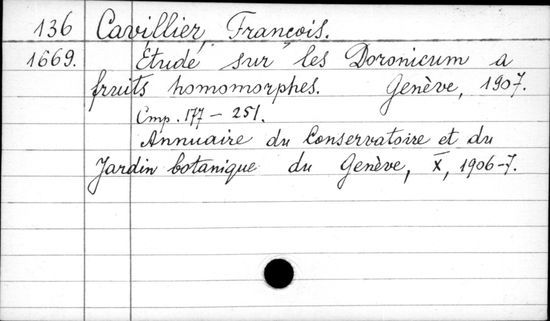 136 Cavillier, François.
1669. Étude sur les Doronicum a
fruits homomorphes. Genève, 1907.
Стр. 177 – 251.
Annuaire du Conservatoire et du
Jardin botanique du Genève, X, 1906-7.